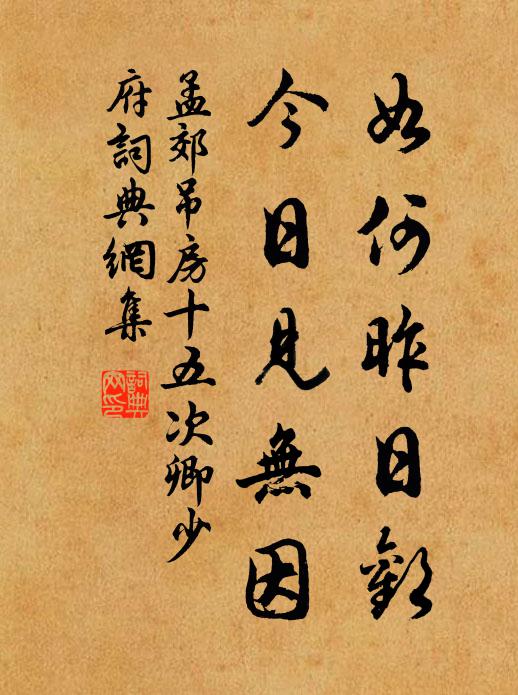 如何昨日歡
今日見無因
孟郊吊房十五次卿少
府詞典網集
詞典
网印